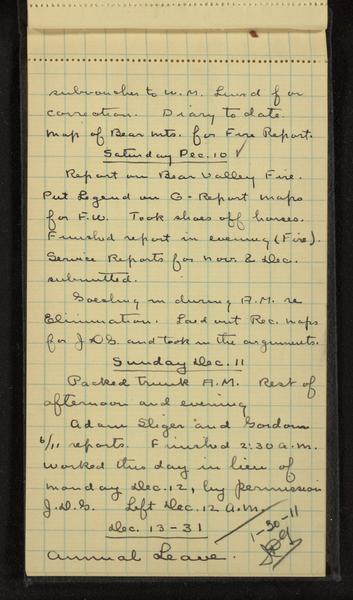 subvoucher to W.M. Lund for
correction. Diary to date.
Map of Bear Mts. for Fire Report.
Saturday Dec. 10 ✓
Report on Bear Valley Fire.
Put Legend on G-Report maps
for F.W. Took shoes off horses.
Finished report in evening (Fire).
Service Reports for Nov. & Dec.
submitted.
in during A.M. re
Elimination. Laid out Rec. maps
for J.D.G. and took in the arguments.
Sunday Dec. 11
Packed trunk A.M. Rest of
afternoon and evening
Adam Sliger and Gordon
6/11 reports. Finished 2:30 a.m.
Worked this day in lieu of
Monday Dec. 12, by permission
J.D.G. Left Dec. 12 A.M.
1-30-11
Dec. 13-31
JDG
Annual Leave.